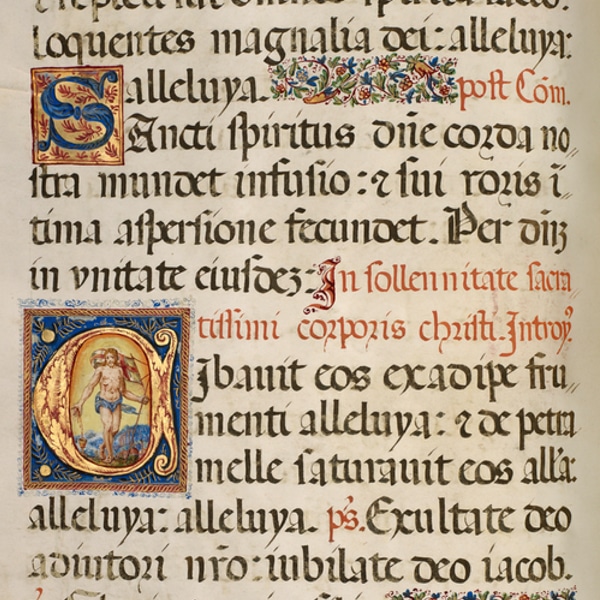 loquentes magnalia dei: alleluya:
alleluya. post Cōm.
SAncti spiritus dn̄e corda no〃
stra mundet infusio: ⁊ sui roris ī〃
tima aspersione fecundet. Per dn̄ʒ
in vnitate eiusdeʒ: In sollennitate sacra
tissimi corporis christi. Introyͭ.
CJbauit eos ex adipe fru〃
menti alleluya: ⁊ de petra
melle saturauit eos all'a:
alleluya: alleluya. ps̄. Exultate deo
adiutori nr̄o: iubilate deo iacob.